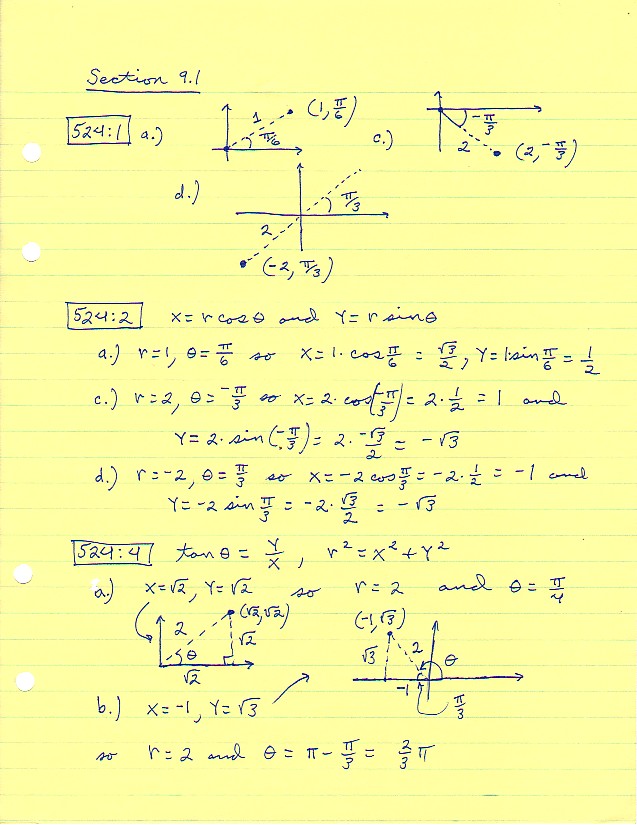 Section 9.1
524:1 a.) 1 π/6 (1, π/6) c.) -π/3 2 (2, -π/3)
d.) π/3 2 (-2, π/3)
524:2 x = r cos θ and y = r sin θ
a.) r = 1, θ = π/6 so x = 1 · cos π/6 = √3/2, y = 1 sin π/6 = 1/2
c.) r = 2, θ = -π/3 so x = 2 · cos(-π/3) = 2 · 1/2 = 1 and
y = 2 · sin(-π/3) = 2 · -√3/2 = -√3
d.) r = -2, θ = π/3 so x = -2 cos π/3 = -2 · 1/2 = -1 and
y = -2 sin π/3 = -2 · √3/2 = -√3
524:4 tan θ = y/x, r² = x² + y²
a.) x = √2, y = √2 so r = 2 and θ = π/4
2 (√2, √2) √2 θ √2
(-1, √3) √3 2 θ -1 π/3
b.) x = -1, y = √3
so r = 2 and θ = π - π/3 = 2/3 π